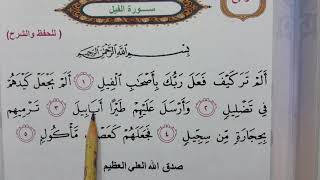 سورة الفيل
(للحفظ والشرح)
بِسْمِ اللَّهِ الرَّحْمَٰنِ الرَّحِيمِ
أَلَمْ تَرَ كَيْفَ فَعَلَ رَبُّكَ بِأَصْحَابِ الْفِيلِ ١ أَلَمْ يَجْعَلْ كَيْدَهُمْ
فِي تَضْلِيلٍ ٢ وَأَرْسَلَ عَلَيْهِمْ طَيْرًا أَبَابِيلَ ٣ تَرْمِيهِم
بِحِجَارَةٍ مِّن سِجِّيلٍ ٤ فَجَعَلَهُمْ كَعَصْفٍ مَّأْكُولٍ ٥
صدق الله العلي العظيم